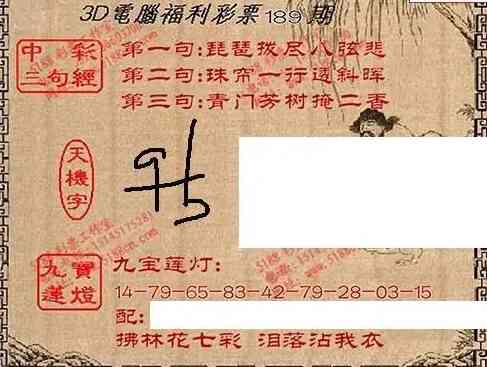 3D電腦福利彩票189期
中彩
三句經
第一句:琵琶拨尽八弦悲
第二句:珠帘一行透斜晖
第三句:青门芳树掩二香
天機字
九寶
蓮燈
九宝莲灯:
14-79-65-83-42-79-28-03-15
配:
拂林花七彩 泪落沾我衣